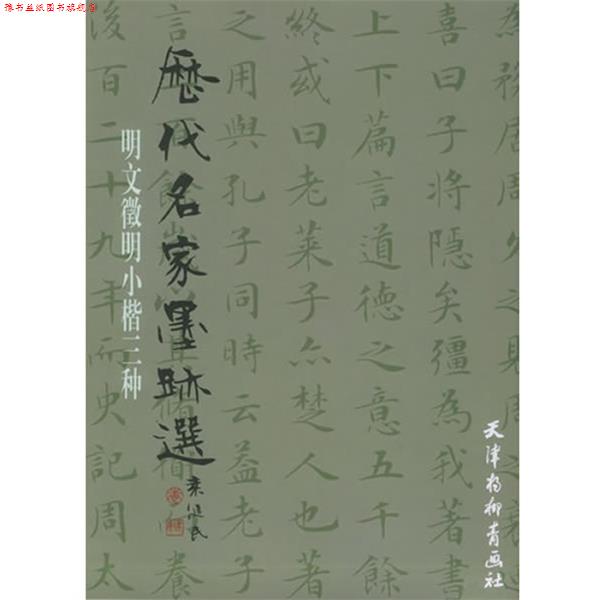 歷代名家墨跡選
明文徵明小楷三种
天津杨柳青画社
為務居周久之見周
喜曰子將隱矣彊為我著書
上下篇言道德之意五千餘
終或曰老萊子亦楚人也著
之用與孔子同時云蓋老子
養
後百二十九年而史記周太